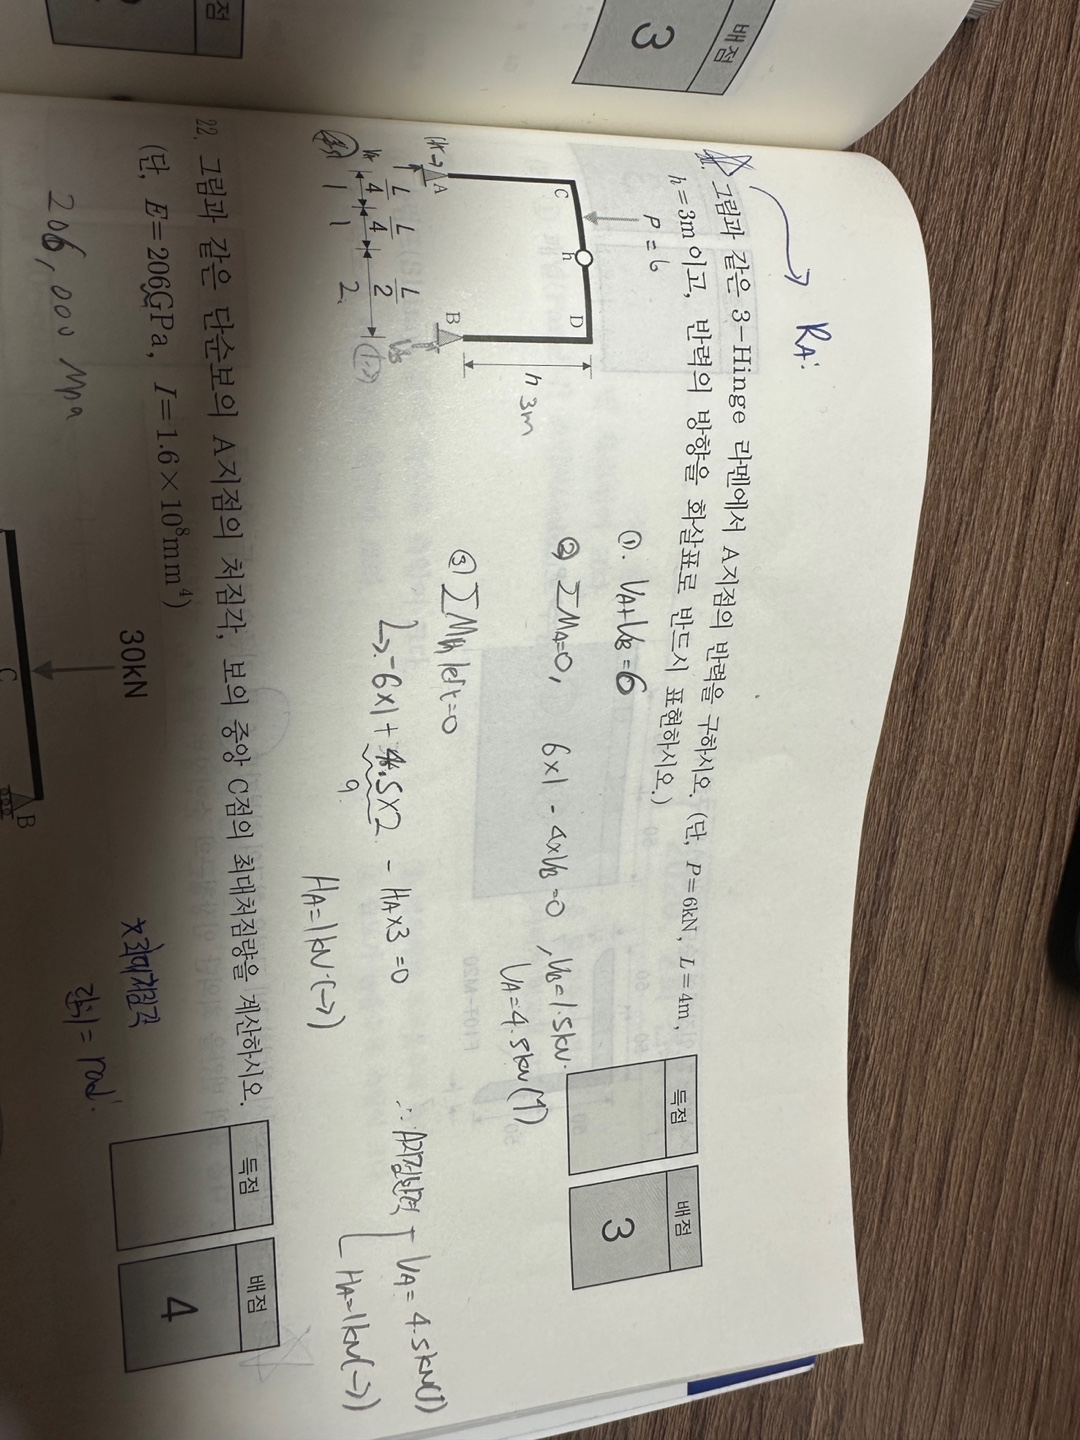 배점
3
점
→ RA:
그림과 같은 3-Hinge 라멘에서 A지점의 반력을 구하시오. (단, P=6kN, L=4m,
h=3m이고, 반력의 방향을 화살표로 반드시 표현하시오.)
득점
배점
3
P=6
C
h
D
A
B
h 3m
L/4
L/4
L/2
1
1
2
①. VA+VB=6
② ΣMA=0, 6×1 - 4×VB=0, VB=1.5kN.
VA=4.5kN(↑)
③ ΣMh left=0
↳ -6×1+4.5×2 - HA×3=0
9
HA=1kN(→)
∴ A지점반력 VA=4.5kN(↑)
HA=1kN(→)
22. 그림과 같은 단순보의 A지점의 처짐각, 보의 중앙 C점의 최대처짐량을 계산하시오.
(단, E=206GPa, I=1.6×10⁸mm⁴)
득점
배점
4
206,000 Mpa
30kN
C
B
= rad.